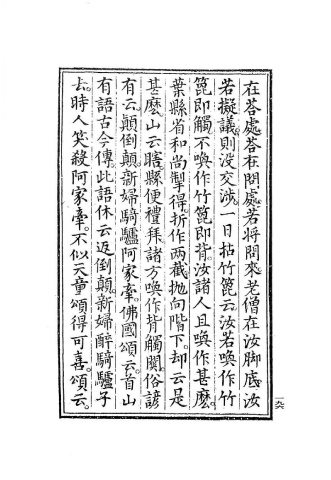 在荅處荅在問處若將問來老僧在汝脚底汝
若擬議則没交涉一日拈竹篦云汝若喚作竹
篦即觸不喚作竹篦即背汝諸人且喚作甚麽
葉縣省和尚掣得折作兩截抛向階下却云是
甚麽山云瞎縣便禮拜諸方喚作背觸關俗諺
有云顛倒顛新婦騎驢阿家牽佛國頌云首山
有語古今傳此語休云返倒顛新婦醉騎驢子
去時人笑殺阿家牽不似天童頌得可喜頌云
一九六